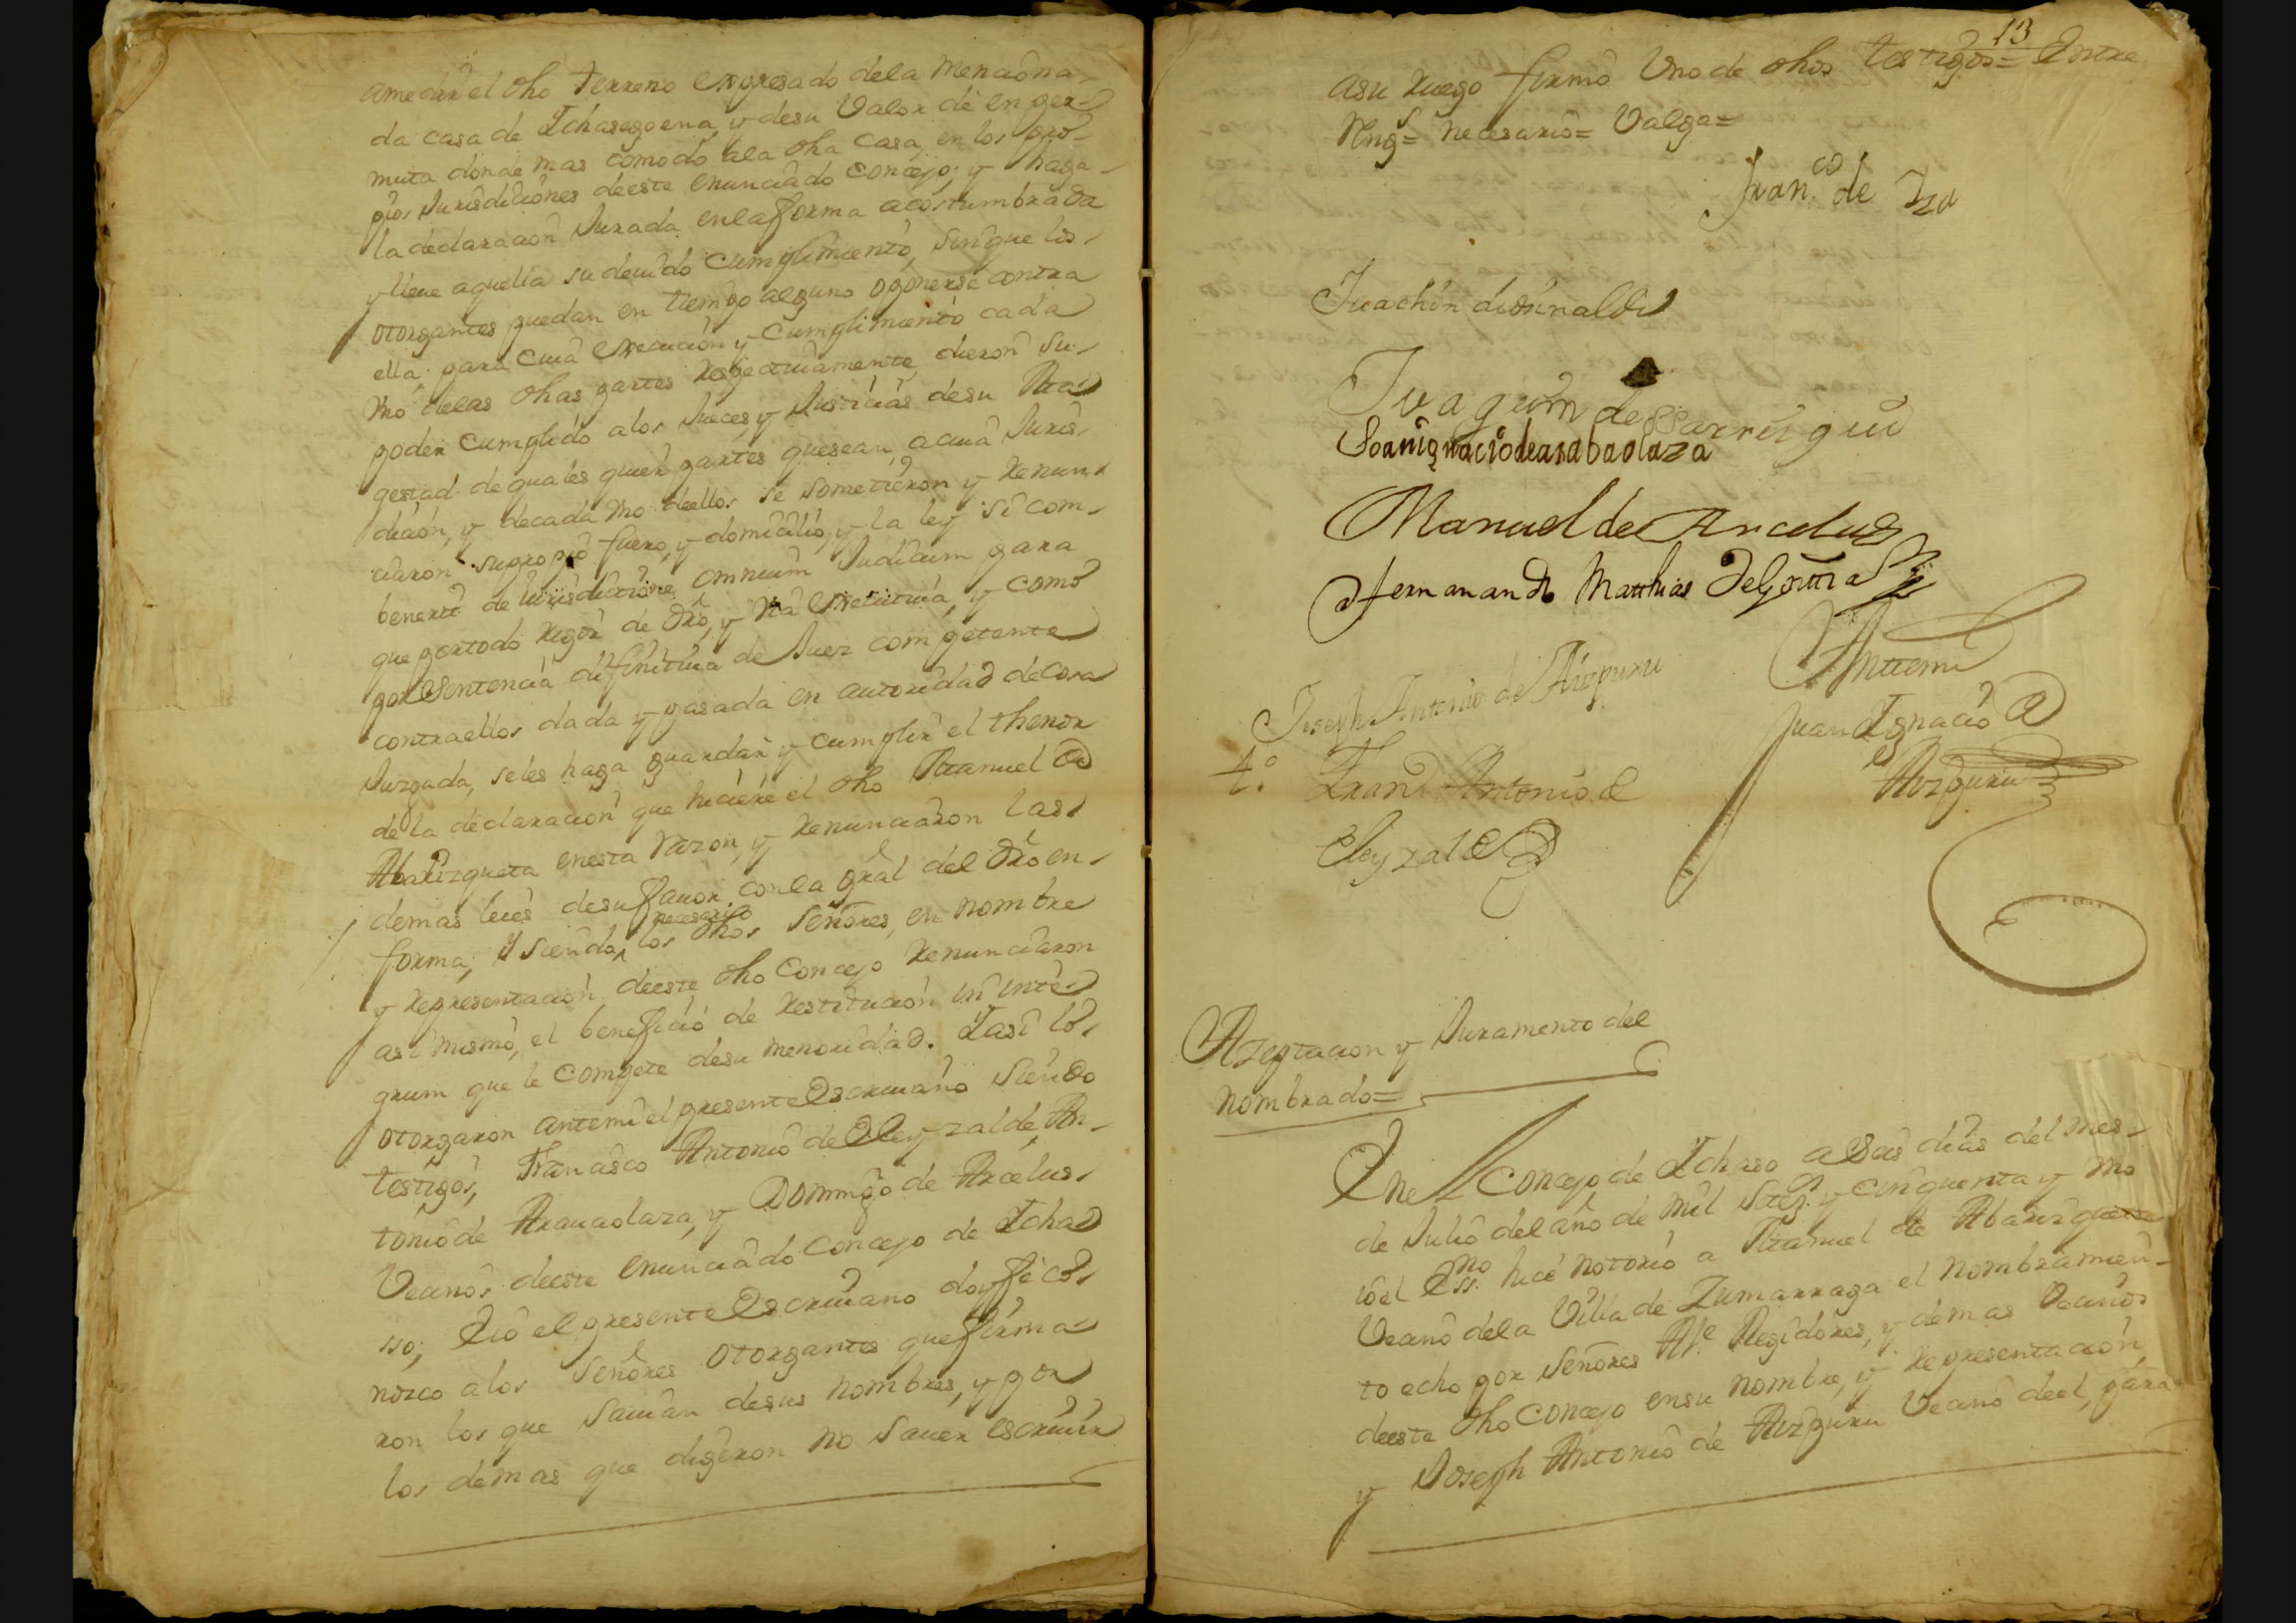 amedir el dho terreno expresado dela menciona
da casa de Ichasegoena, y desu Valor dé en per-
muta donde mas comodo ala dha casa, en los pro-
pios Jurisdiciones deeste enunciado concejo; y haga
la declaracion Jurada enlaforma acostumbrada
y lleue aquella su deuido cumplimiento, sinque los
otorgantes puedan en tiempo alguno oponerse contra
ella: para cuia execucion y cumplimiento cada
vno delas dhas partes respectiuamente dieron su
poder cumplido alos Jueces y Justicias desu Mag
gestad de quales quier partes quesean, acuia Juris
dicion, y decada vno deellos se sometieron y renun
ciaron su propio fuero, y domicilio, y la ley si com-
benerit de iurisdictione omnium Judicum para
que portodo rigor de dro, y via executiua, y como
por sentencia difinitiua de Juez competente
contraellos dada y pasada en autoridad decosa
Juzgada, seles haga guardar y cumplir el thenor
dela declaracion que hiciere el dho Manuel de
Abarizqueta enesta razon, y renunciaron las
demas leies desufauor, conla gral del dro en
forma; y siendo necesario los dhos señores, en nombre
y representacion deeste dho Concejo renunciaron
asi mismo, el beneficio de restitucion in inte
grum que le compete desu menoridad. Yasi lo
otorgaron antemi el presente Escriuano siendo
testigos, Francisco Antonio de Eleyzalde, An-
tonio de Aranaolaza, y Domingo de Arcelus
Vecinos deeste enunciado concejo de Icha
sso; Eio el presente Escriuano doyfé co
nozco alos señores otorgantes quefirma
ron los que sauian desus nombres, y por
los demas que digeron no sauer escriuir
13
asu ruego firmó Vno de dhos testigos= Entre
Rengs= necesario= Valga=
Fran.co de Iza
Juachin
Juaquin de
Joanignaciodearabaolaza
Manuel de Arcelus
Hernanando Matthias
Joseph Antonio de Aizpuru
Antemi
Juan Ignacio de
Aizpuru
t.o Fran Antonio de
Eleyzalde
Azeptacion y Juramento del
nombrado=
Enel Concejo de Ichaso a seis dias del mes
de Julio del año de mil setez.s y cinquenta y vno
io el Ess.no hicé notorio a Manuel de Abarizqueta
Vecino dela Villa de Zumarraga el nombramien-
to echo por señores Al.e Regidores, y demas Vecinos
deeste dho Concejo ensu nombre, y representacion
y Joseph Antonio de Aizpuru Vecino deel, para